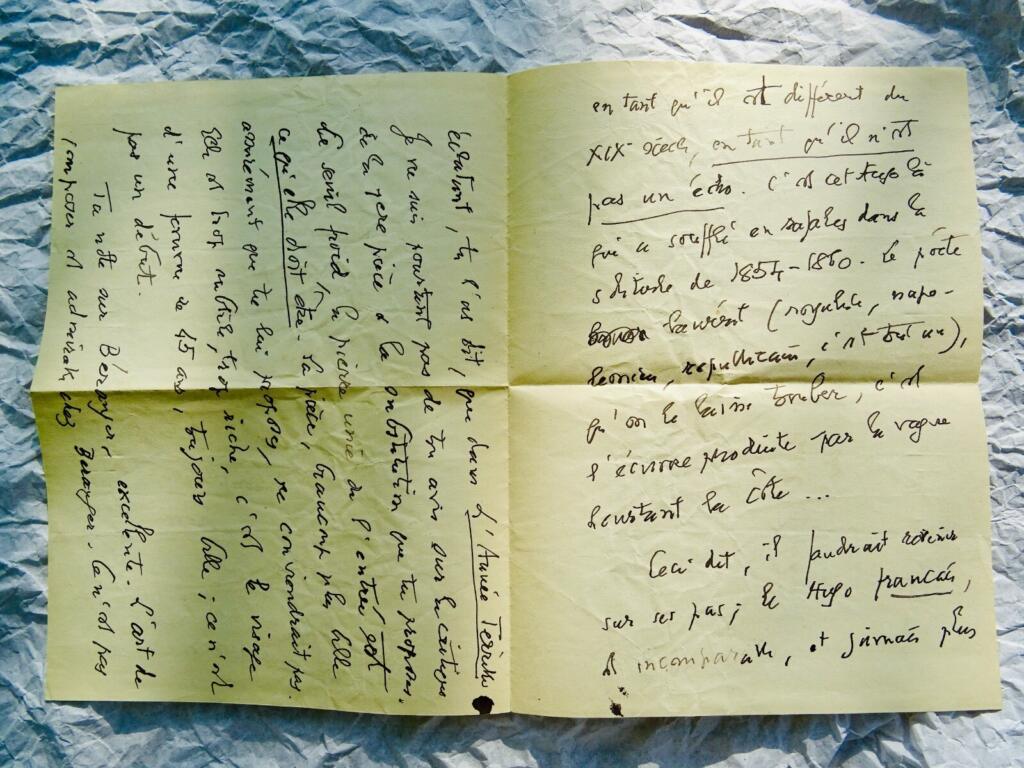 en tant qu'il est différent du
XIX siècle, en tant qu'il n'est
pas un écho. C'est cet Hugo là
qui a soufflé en rafales dans la
solitude de 1854-1860. Le poète
lauréat (royaliste, napo-
léonien, républicain, c'est tout un),
qu'on le laisse tomber, c'est
l'écume produite par la vague
heurtant la côte ...
Ceci dit, il faudrait revenir
sur ses pas; le Hugo français,
est incomparable, et jamais plus
éclatant, tu l'as dit, que dans L'Année Terrible
Je ne suis pourtant pas de ton avis sur
de la 9ère pièce à la substitution que tu proposes.
Le seuil froid, la pierre unie du l'entrée, est
ce qu'elle doit être. La pièce, beaucoup plus belle
assurément que tu lui proposes, ne conviendrait pas.
Elle est trop subtile, trop riche, c'est le visage
d'une femme de 45 ans, toujours belle; ce n'est
pas un début.
Ta note sur Béranger, excellente. L'art de
composer est admirable chez Béranger. Ce n'est pas